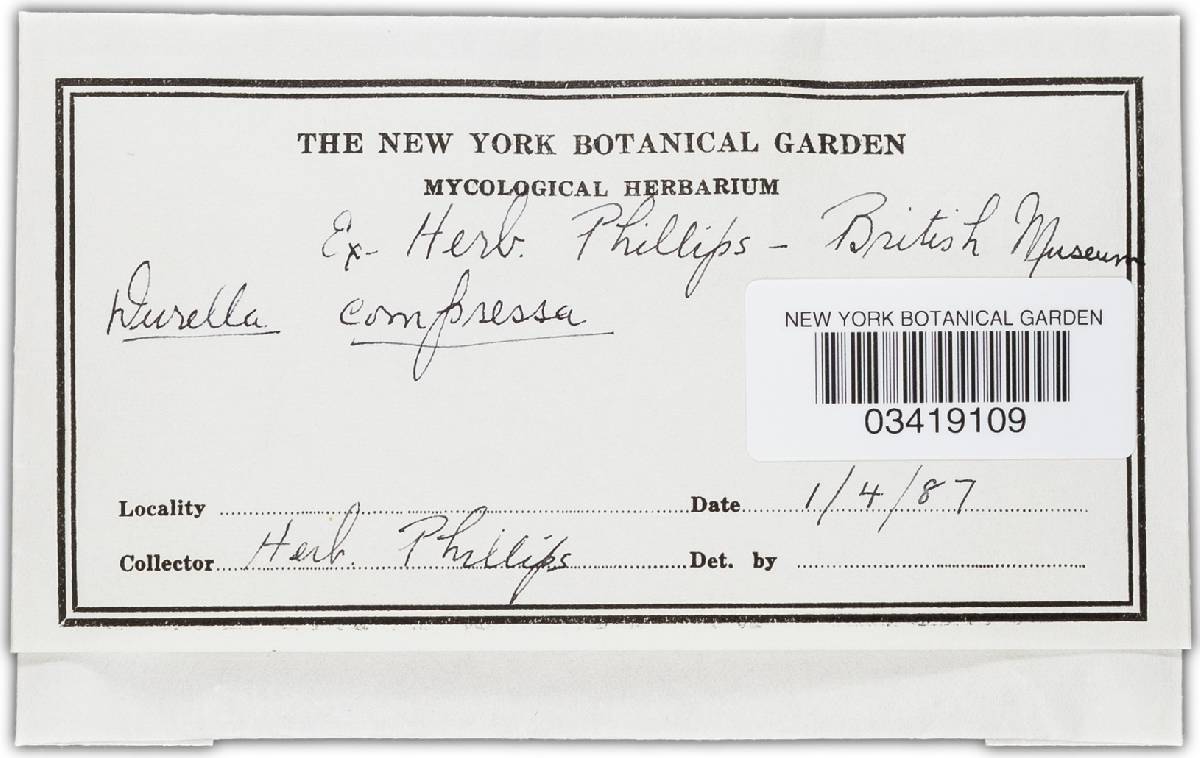 THE NEW YORK BOTANICAL GARDEN
MYCOLOGICAL HERBARIUM
Ex- Herb. Phillips - British Museum
Durella compressa
NEW YORK BOTANICAL GARDEN
03419109
Locality Date 1/4/87
Collector Herb. Phillips Det. by